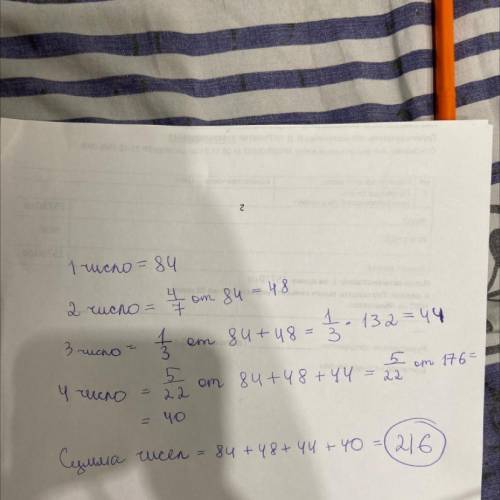 2
1 число = 84
2 число = 4/7 от 84 = 48
3 число = 1/3 от 84 + 48 = 1/3 · 132 = 44
4 число = 5/22 от 84 + 48 + 44 = 5/22 от 176 =
= 40
Сумма чисел = 84 + 48 + 44 + 40 = 216